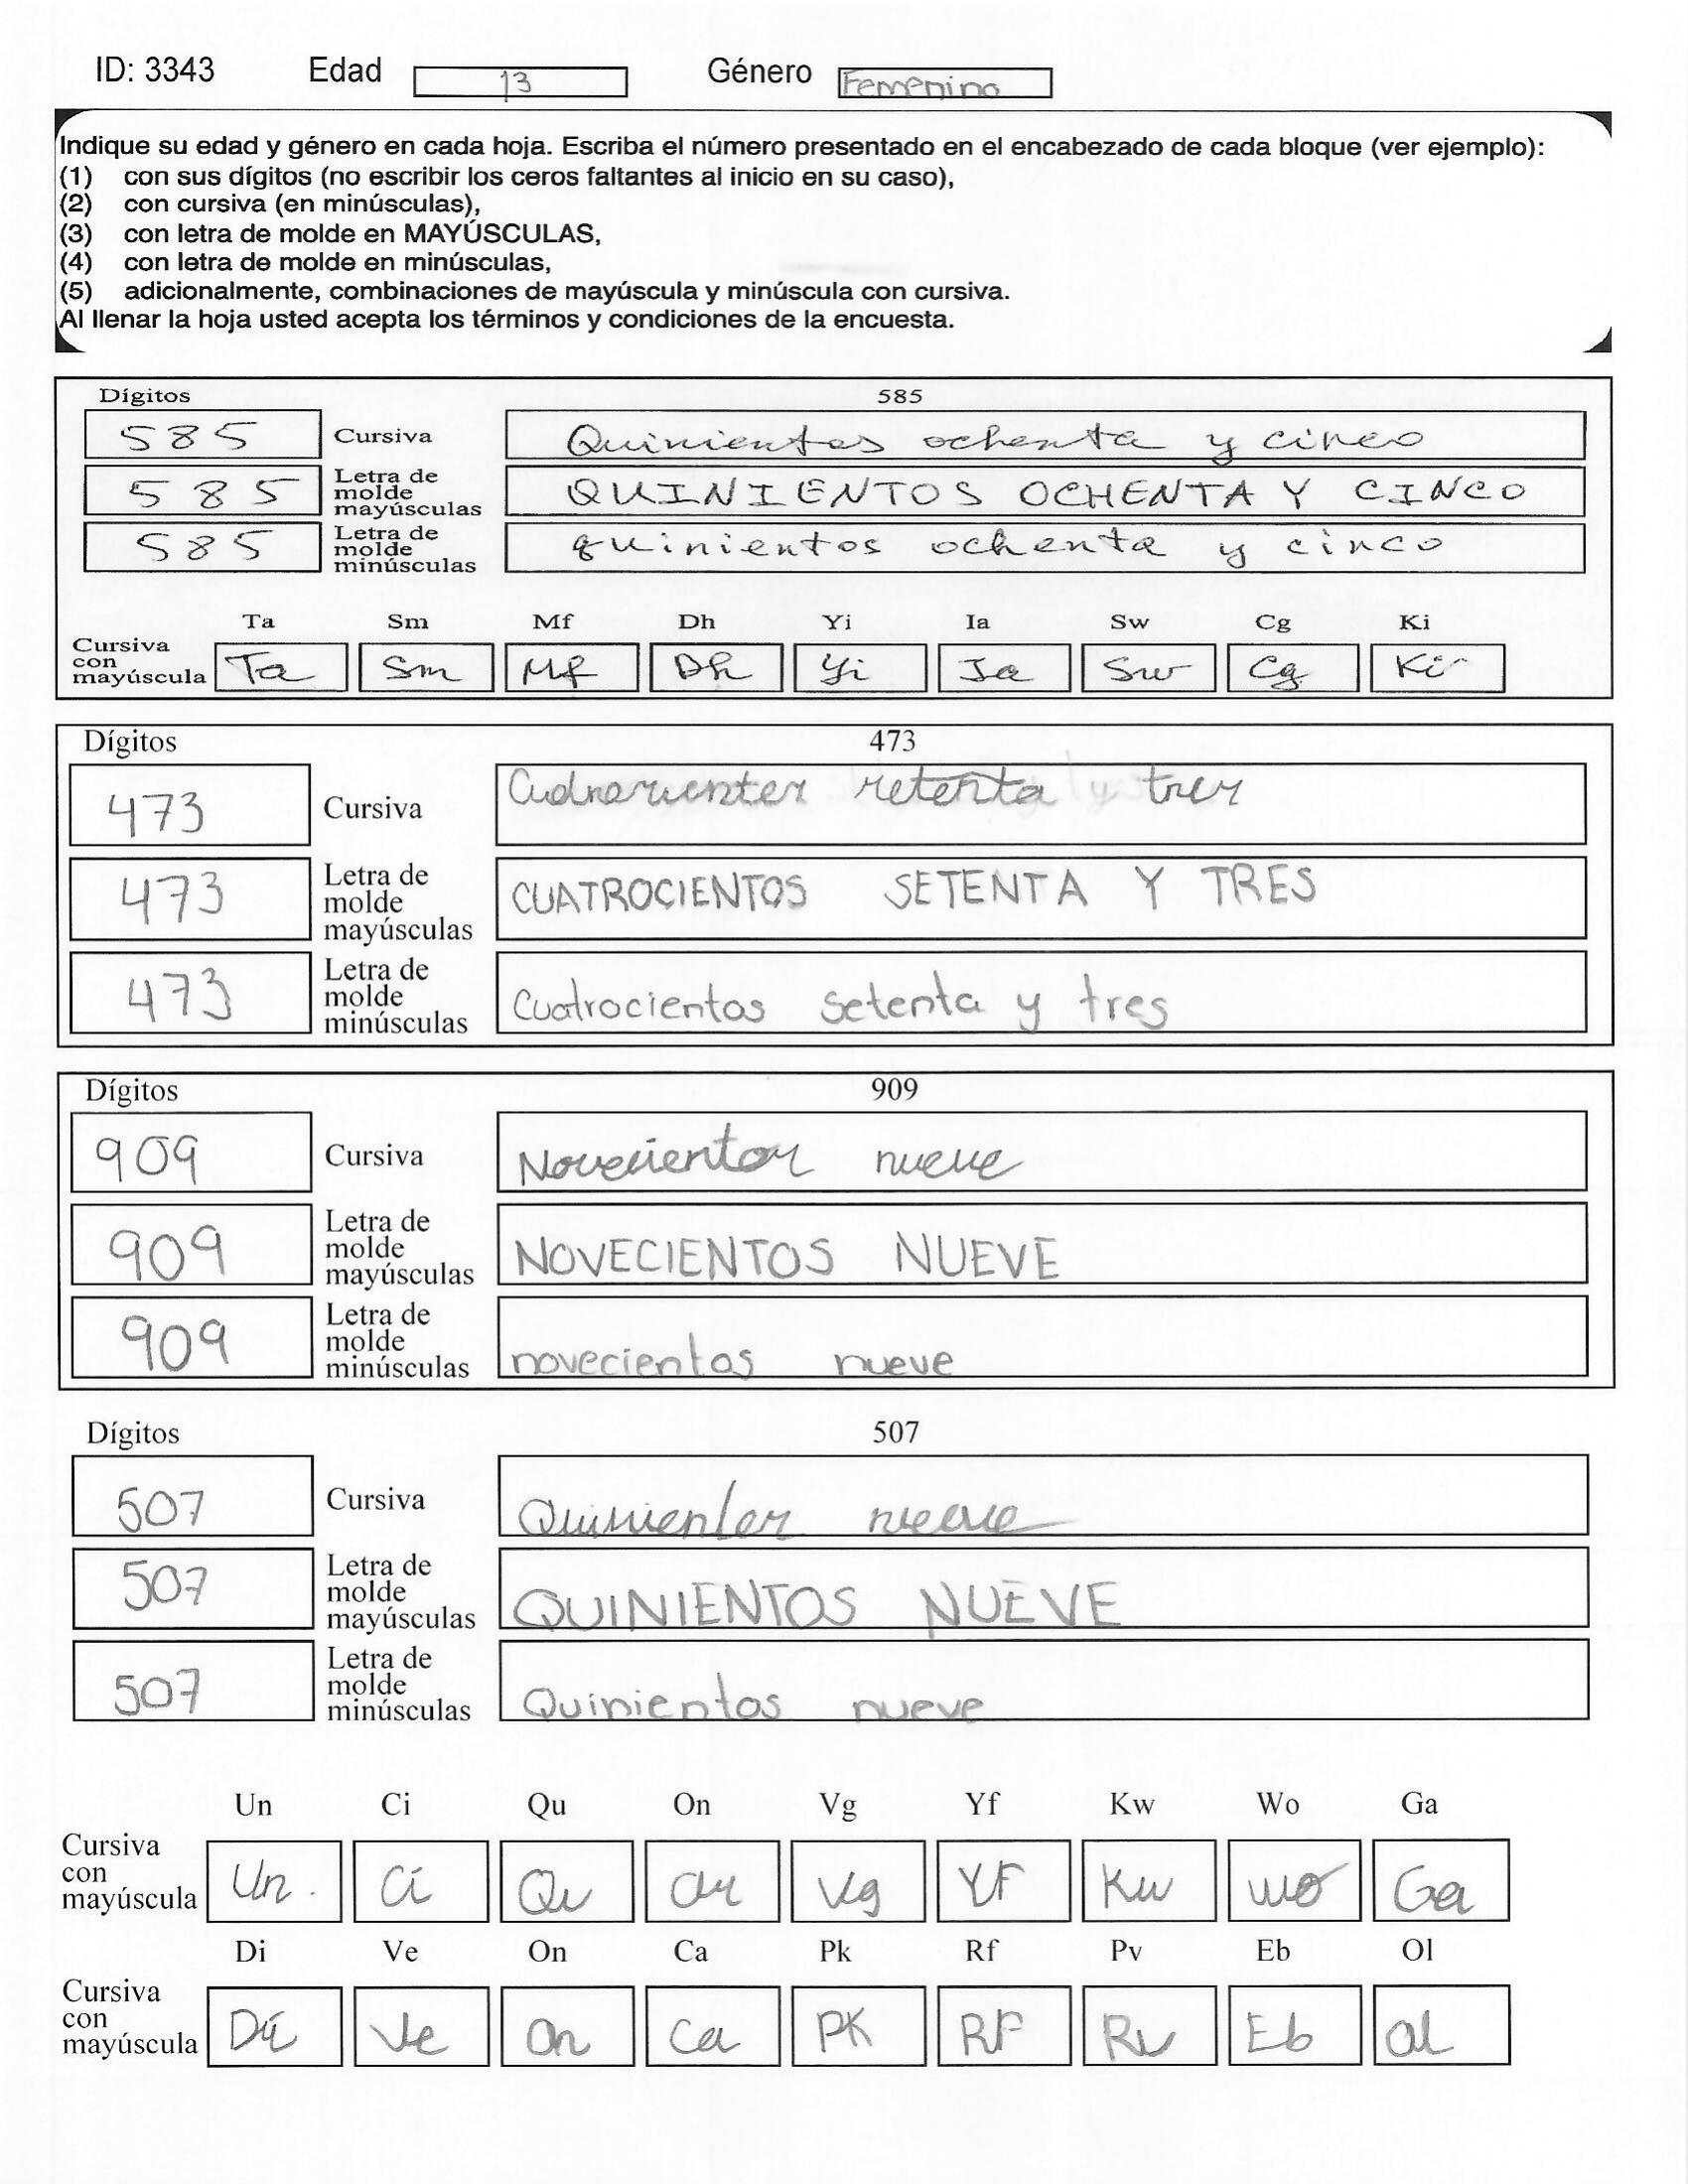 ID: 3343 Edad 13 Género Femenino
Indique su edad y género en cada hoja. Escriba el número presentado en el encabezado de cada bloque (ver ejemplo):
(1) con sus dígitos (no escribir los ceros faltantes al inicio en su caso),
(2) con cursiva (en minúsculas),
(3) con letra de molde en MAYÚSCULAS,
(4) con letra de molde en minúsculas,
(5) adicionalmente, combinaciones de mayúscula y minúscula con cursiva.
Al llenar la hoja usted acepta los términos y condiciones de la encuesta.
Dígitos 585
585 Cursiva Quinientos ochenta y cinco
585 Letra de molde mayúsculas QUINIENTOS OCHENTA Y CINCO
585 Letra de molde minúsculas quinientos ochenta y cinco
Ta Sm Mf Dh Yi Ia Sw Cg Ki
Cursiva con mayúscula Ta Sm Mf Dh Yi Ia Sw Cg Ki
Dígitos 473
473 Cursiva setenta y tres
473 Letra de molde mayúsculas CUATROCIENTOS SETENTA Y TRES
473 Letra de molde minúsculas Cuatrocientos setenta y tres
Dígitos 909
909 Cursiva Novecientos nueve
909 Letra de molde mayúsculas NOVECIENTOS NUEVE
909 Letra de molde minúsculas novecientos nueve
Dígitos 507
507 Cursiva Quinientos nueve
507 Letra de molde mayúsculas QUINIENTOS NUEVE
507 Letra de molde minúsculas Quinientos nueve
Un Ci Qu On Vg Yf Kw Wo Ga
Cursiva con mayúscula Un Ci Qu On Vg YF Kw Wo Ga
Di Ve On Ca Pk Rf Pv Eb Ol
Cursiva con mayúscula Di Ve On Ca PK RF Rv Eb Ol